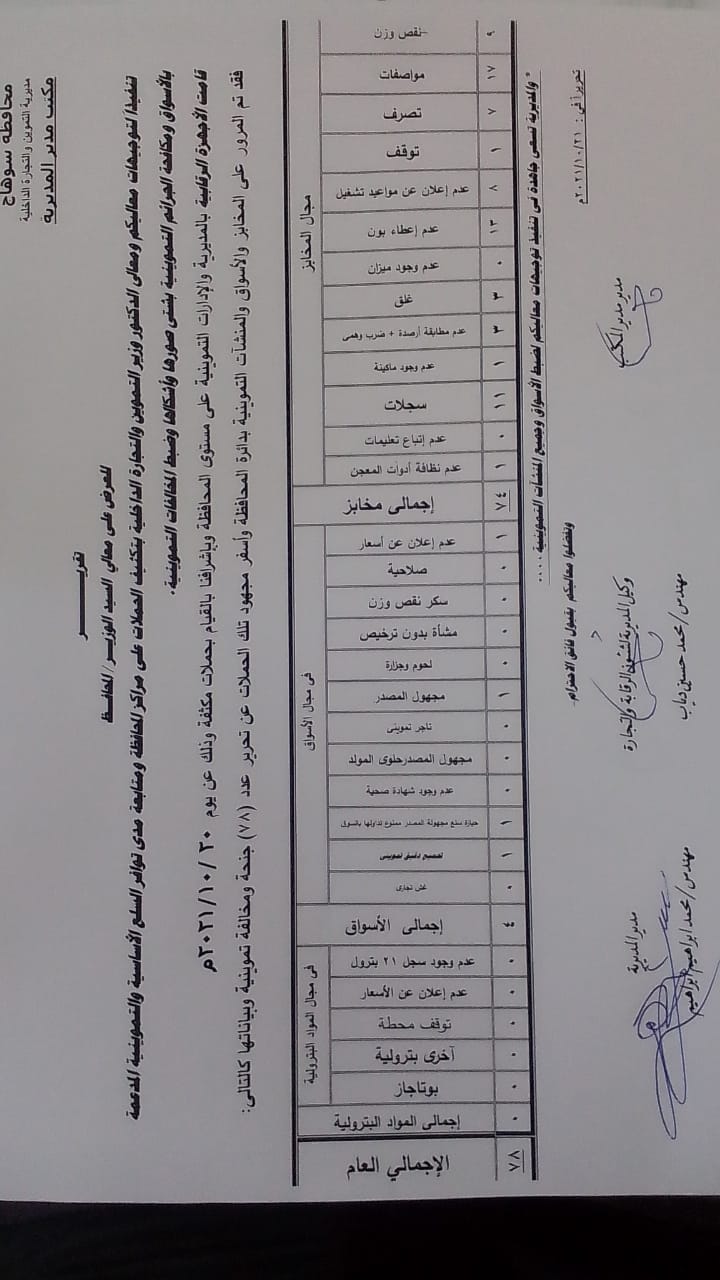 محافظة سوهاج
مديرية التموين والتجارة الداخلية
مكتب مدير المديرية
تقريـــــــر
للعرض على معالي السيد الوزير / المحافظ
تنفيذاً لتوجيهات معاليكم ومعالى الدكتور وزير التموين والتجارة الداخلية بتكثيف الحملات على مراكز المحافظة ومتابعة مدى توافر السلع الأساسية والتموينية المدعمة
بالأسواق ومكافحة الجرائم التموينية بشتى صورها وأشكالها وضبط المخالفات التموينية.
قامت الأجهزة الرقابية بالمديرية والإدارات التموينية على مستوى المحافظة وبإشرافنا بالقيام بحملات مكثفة وذلك عن يوم ٢٠٢١/١٠/٣٠م
فقد تم المرور على المخابز والأسواق والمنشآت التموينية بدائرة المحافظة وأسفر مجهود تلك الحملات عن تحرير عدد (٧٨) جنحة ومخالفة تموينية وبياناتها كالتالى:
مجال المخابز
نقص وزن ٩
مواصفات ١٧
تصرف ٧
توقف ١
عدم إعلان عن مواعيد تشغيل ٨
عدم إعطاء بون ١٣
عدم وجود ميزان ٠
غلق ٣
عدم مطابقة أرصدة + ضرب وهمى ٣
عدم وجود ماكينة ١
سجلات ١١
عدم إتباع تعليمات ٠
عدم نظافة أدوات المعجن ١
إجمالى مخابز ٧٤
فى مجال الأسواق
عدم إعلان عن أسعار ١
صلاحية ٠
سكر نقص وزن ٠
مشأة بدون ترخيص ٠
لحوم وجزارة ٠
مجهول المصدر ١
تاجر تموينى ٠
مجهول المصدرحلوى المولد ٠
عدم وجود شهادة صحية ٠
حيازة سلع مجهولة المصدر ممنوع تداولها بالسوق ١
تجميع دقيق تموينى ١
غش تجارى ٠
إجمالى الأسواق ٤
فى مجال المواد البترولية
عدم وجود سجل ٢١ بترول ٠
عدم إعلان عن الأسعار ٠
توقف محطة ٠
آخرى بترولية ٠
بوتاجاز ٠
إجمالى المواد البترولية ٠
الإجمالي العام ٧٨
* والمديرية تسعى جاهدة فى تنفيذ توجيهات معاليكم لضبط الأسواق وجميع المنشآت التموينية ....
وتفضلوا معاليكم بقبول فائق الاحترام
تحريراً في : ٢٠٢١/١٠/٣١م
مدير مدير المكتب
وكيل المديرية لشئون الرقابة والتجارة
مهندس/ محمد حسين دياب
مدير المديرية
مهندس/ محمد ابراهيم ابراهيم